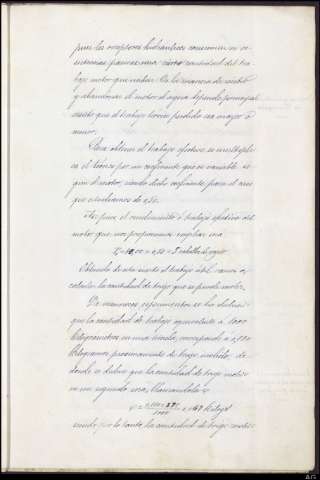 pues los receptores hidráulicos consumen en re-
sistencias pasivas una cierta cantidad del tra-
bajo motor que reciben. De la manera de recibir
y abandonar el motor el agua depende principal-
mente que el trabajo perdido sea mayor ó
menor.
Para obtener el trabajo efectivo se multipli-
ca el teórico por un coeficiente que es variable se-
gún el motor, siendo dicho coeficiente para el caso
que estudiamos de 0,50.
Así pues el rendimiento ó trabajo efectivo del
motor que nos proponemos emplear será
caballos de vapor
Obtenido de esta suerte el trabajo útil vamos á
calcular la cantidad de trigo que se puede moler.
De numerosos experimentos se ha deducido
que la cantidad de trabajo equivalente á 1000
kilogrametros en una
kilogramos próximamente de trigo molido, de
donde se deduce que la cantidad de trigo molido
en un segundo será, llamándola
siendo por lo tanto la cantidad de trigo moli-